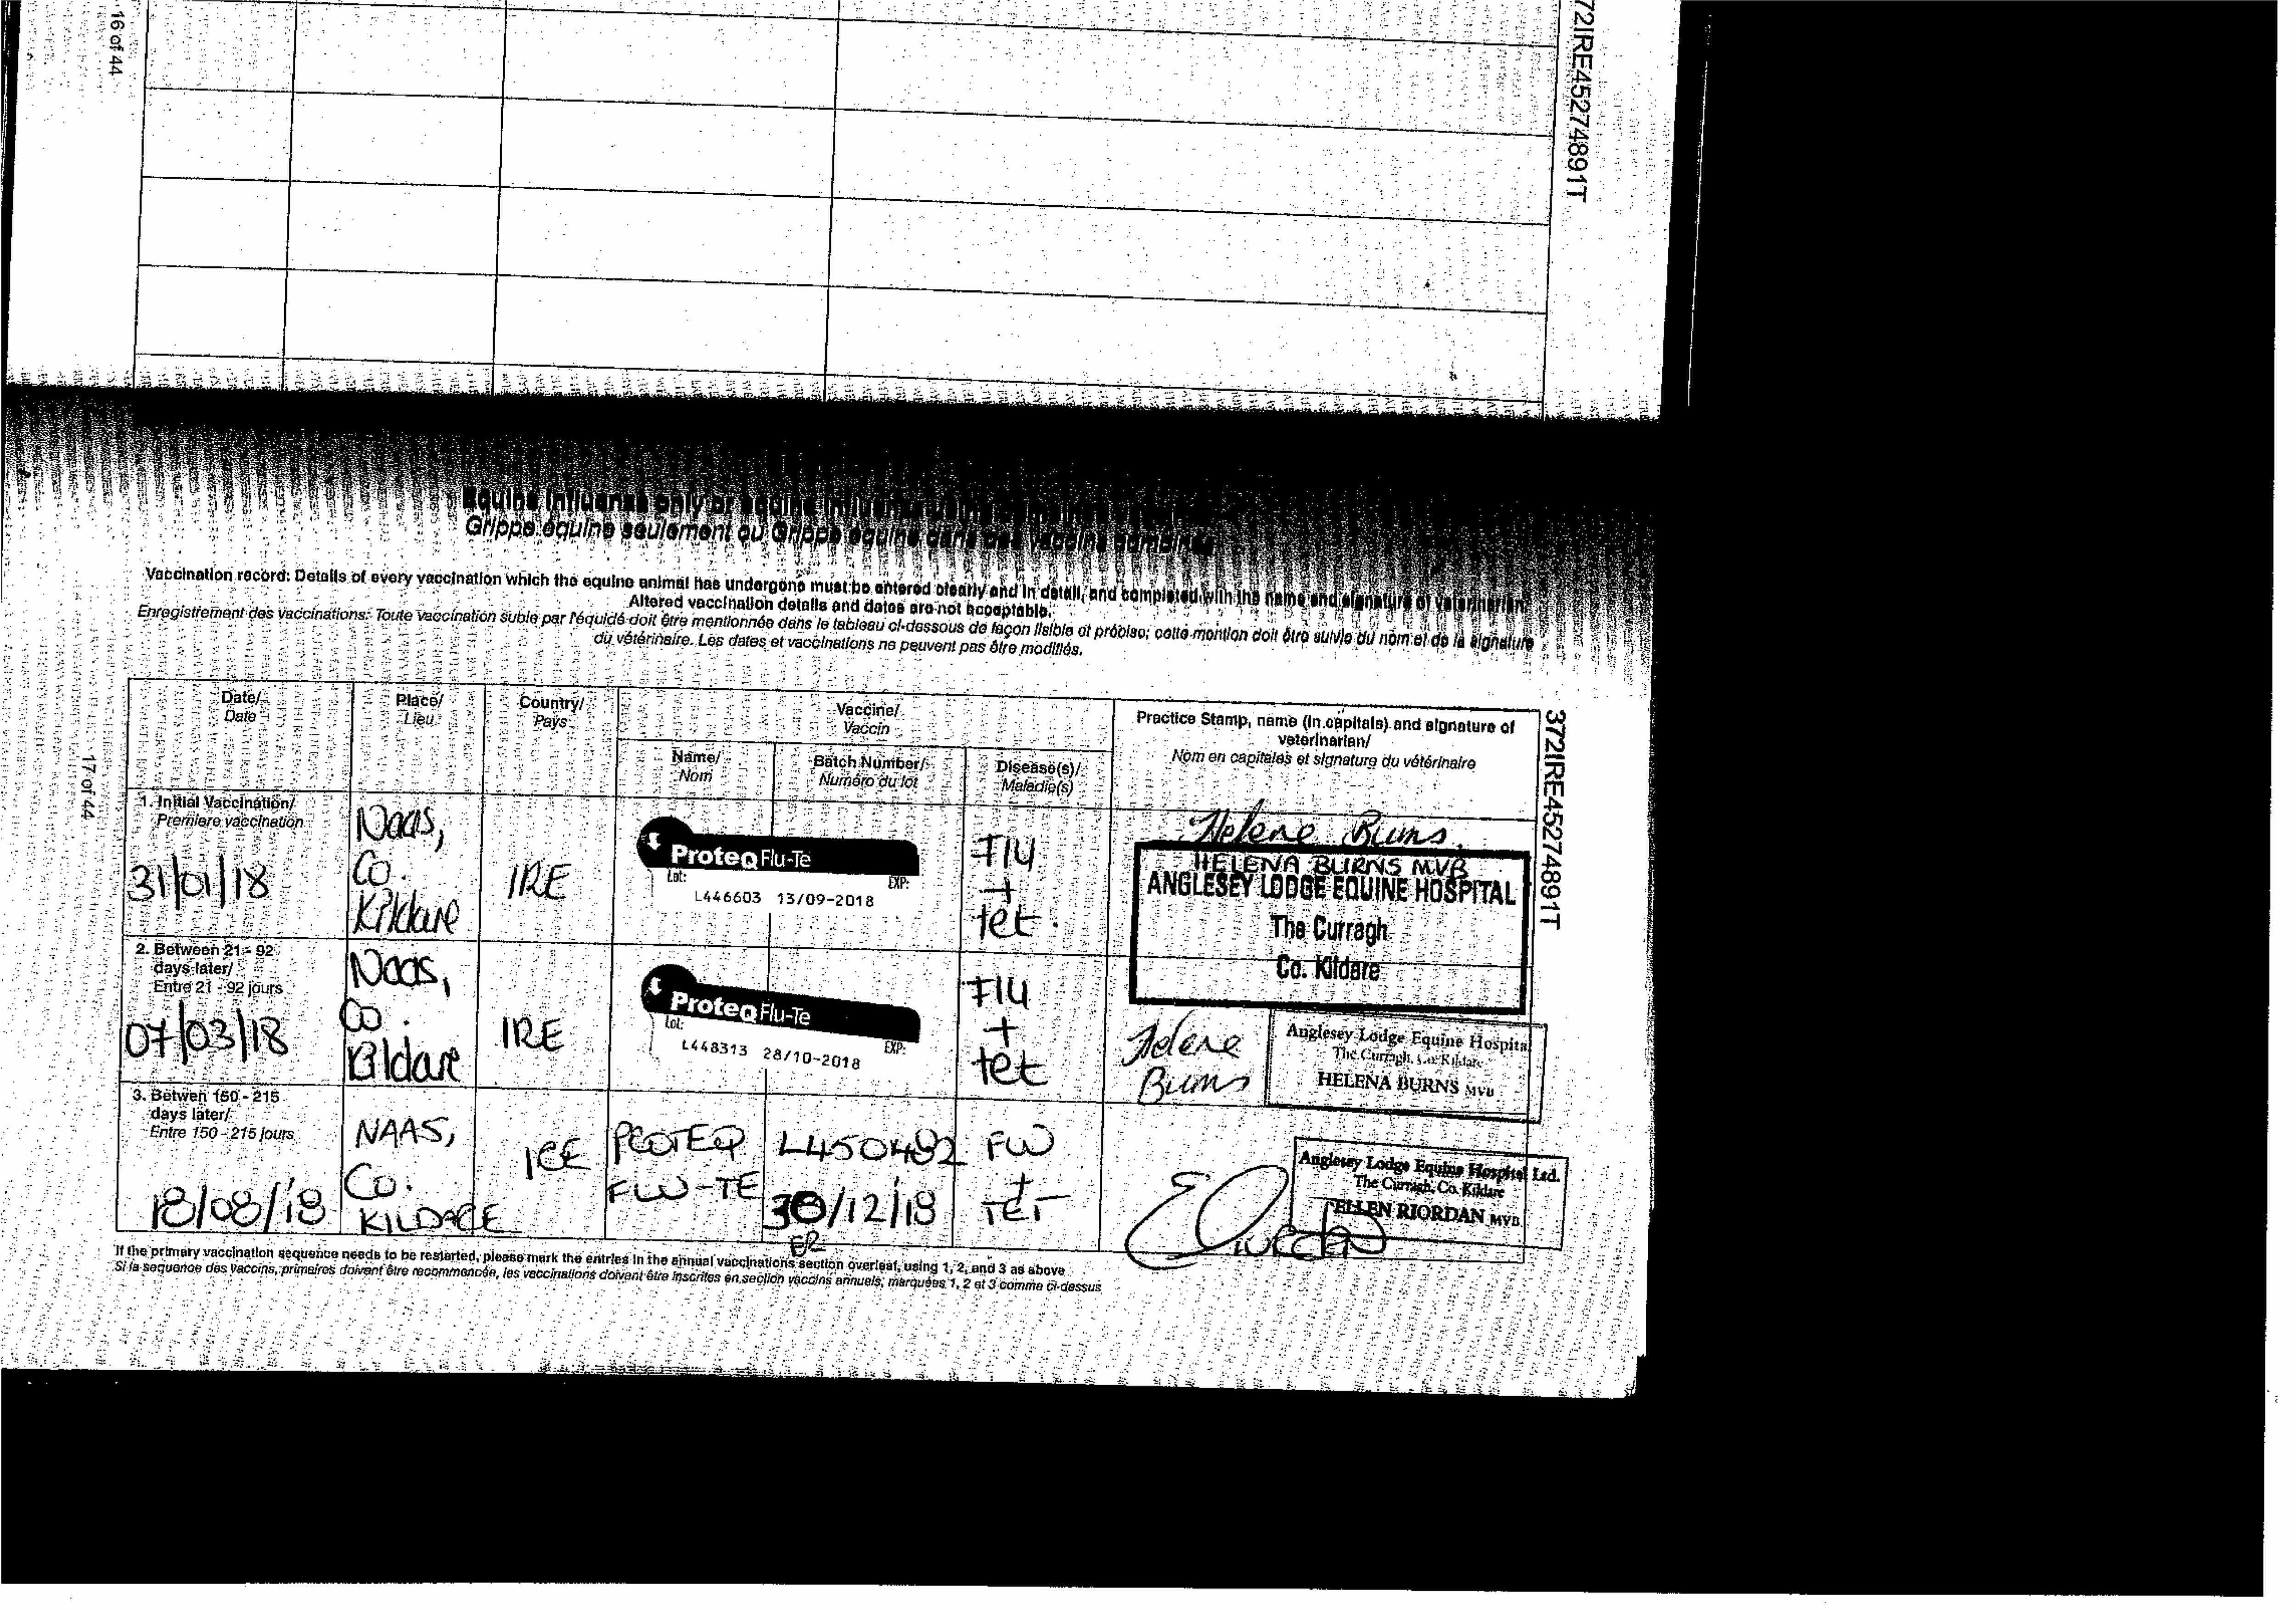 16 of 44
72IRE45274891T
Equine influenza only or equine influenza using
Grippe équine seulement ou Grippe équine dans des vaccins combinés
Vaccination record: Details of every vaccination which the equine animal has undergone must be entered clearly and in detail, and completed with the name and signature of veterinarian.
Altered vaccination details and dates are not acceptable.
Enregistrement des vaccinations: Toute vaccination subie par l'équidé doit être mentionnée dans le tableau ci-dessous de façon lisible et précise; cette mention doit être suivie du nom et de la signature
du vétérinaire. Les dates et vaccinations ne peuvent pas être modifiés.
17 of 44
372IRE45274891T
Date/
Date
Place/
Lieu
Country/
Pays
Vaccine/
Vaccin
Name/
Nom
Batch Number/
Numéro du lot
Disease(s)/
Maladie(s)
Practice Stamp, name (in capitals) and signature of
veterinarian/
Nom en capitales et signature du vétérinaire
1. Initial Vaccination/
Premiere vaccination
31/01/18
Naas,
Co.
Kildare
IRE
ProteqFlu-Te
Lot: EXP:
L446603 13/09-2018
Flu
+
tet.
Helena Burns.
HELENA BURNS MVB
ANGLESEY LODGE EQUINE HOSPITAL
The Curragh
Co. Kildare
2. Between 21 - 92
days later/
Entre 21 - 92 jours
07/03/18
Naas,
Co.
Kildare
IRE
ProteqFlu-Te
Lot: EXP:
L448313 28/10-2018
Flu
+
tet
Helena
Burns
Anglesey Lodge Equine Hospital
The Curragh, Co. Kildare
HELENA BURNS MVB
3. Betwen 150 - 215
days later/
Entre 150 - 215 jours
18/08/18
NAAS,
Co.
KILDARE
IRE
PROTEQ
FLU-TE
L450482
30/12/18
ER
FLU
+
TET
Anglesey Lodge Equine Hospital Ltd.
The Curragh, Co. Kildare
ELLEN RIORDAN MVB
If the primary vaccination sequence needs to be restarted, please mark the entries in the annual vaccinations section overleaf, using 1, 2, and 3 as above
Si la sequence des vaccins, primaires doivent être recommencée, les vaccinations doivent être inscrites en section vaccins annuels, marquées 1, 2 et 3 comme ci-dessus